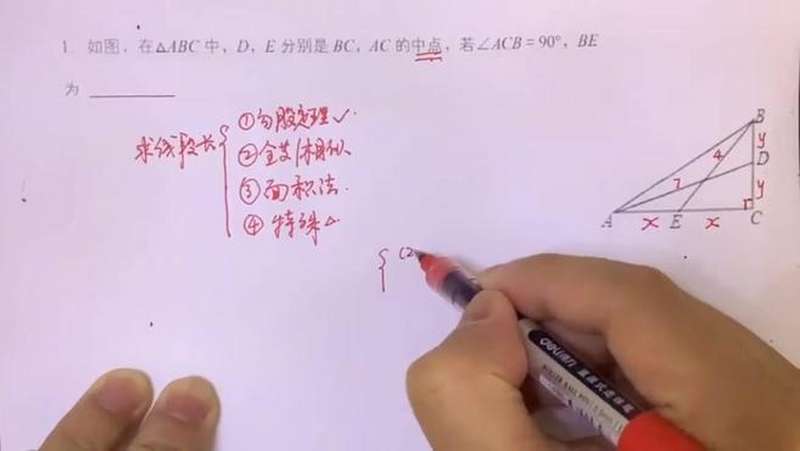 1. 如图，在△ABC中，D，E分别是BC，AC的中点，若∠ACB=90°，BE
为
求线段长
①勾股定理✓
②全等/相似
③面积法
④特殊△
(2
B
y
4
D
7
y
A x E x C